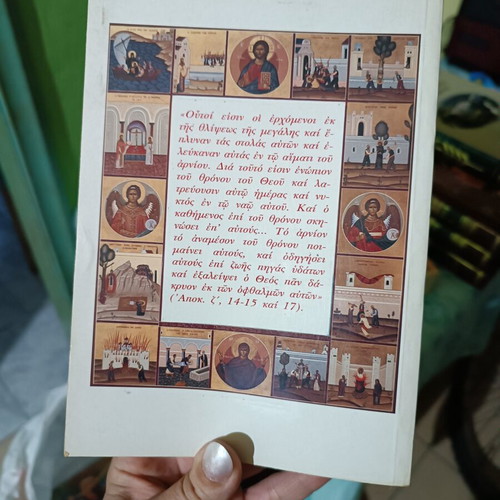 «Οὗτοί εἰσιν οἱ ἐρχόμενοι ἐκ
τῆς θλίψεως τῆς μεγάλης καί ἔ-
πλυναν τάς στολάς αὐτῶν καί ἐ-
λεύκαναν αὐτάς ἐν τῷ αἵματι τοῦ
ἀρνίου. Διά τοῦτό εἰσιν ἐνώπιον
τοῦ θρόνου τοῦ Θεοῦ καί λα-
τρεύουσιν αὐτῷ ἡμέρας καί νυ-
κτός ἐν τῷ ναῷ αὐτοῦ. Καί ὁ
καθήμενος ἐπί τοῦ θρόνου σκη-
νώσει ἐπ' αὐτούς... Τό ἀρνίον
τό ἀναμέσον τοῦ θρόνου ποι-
μαίνει αὐτούς, καί ὁδηγήσει
αὐτούς ἐπί ζωῆς πηγάς ὑδάτων
καί ἐξαλείψει ὁ Θεός πᾶν δά-
κρυον ἐκ τῶν ὀφθαλμῶν αὐτῶν»
('Αποκ. ζ', 14-15 καί 17).